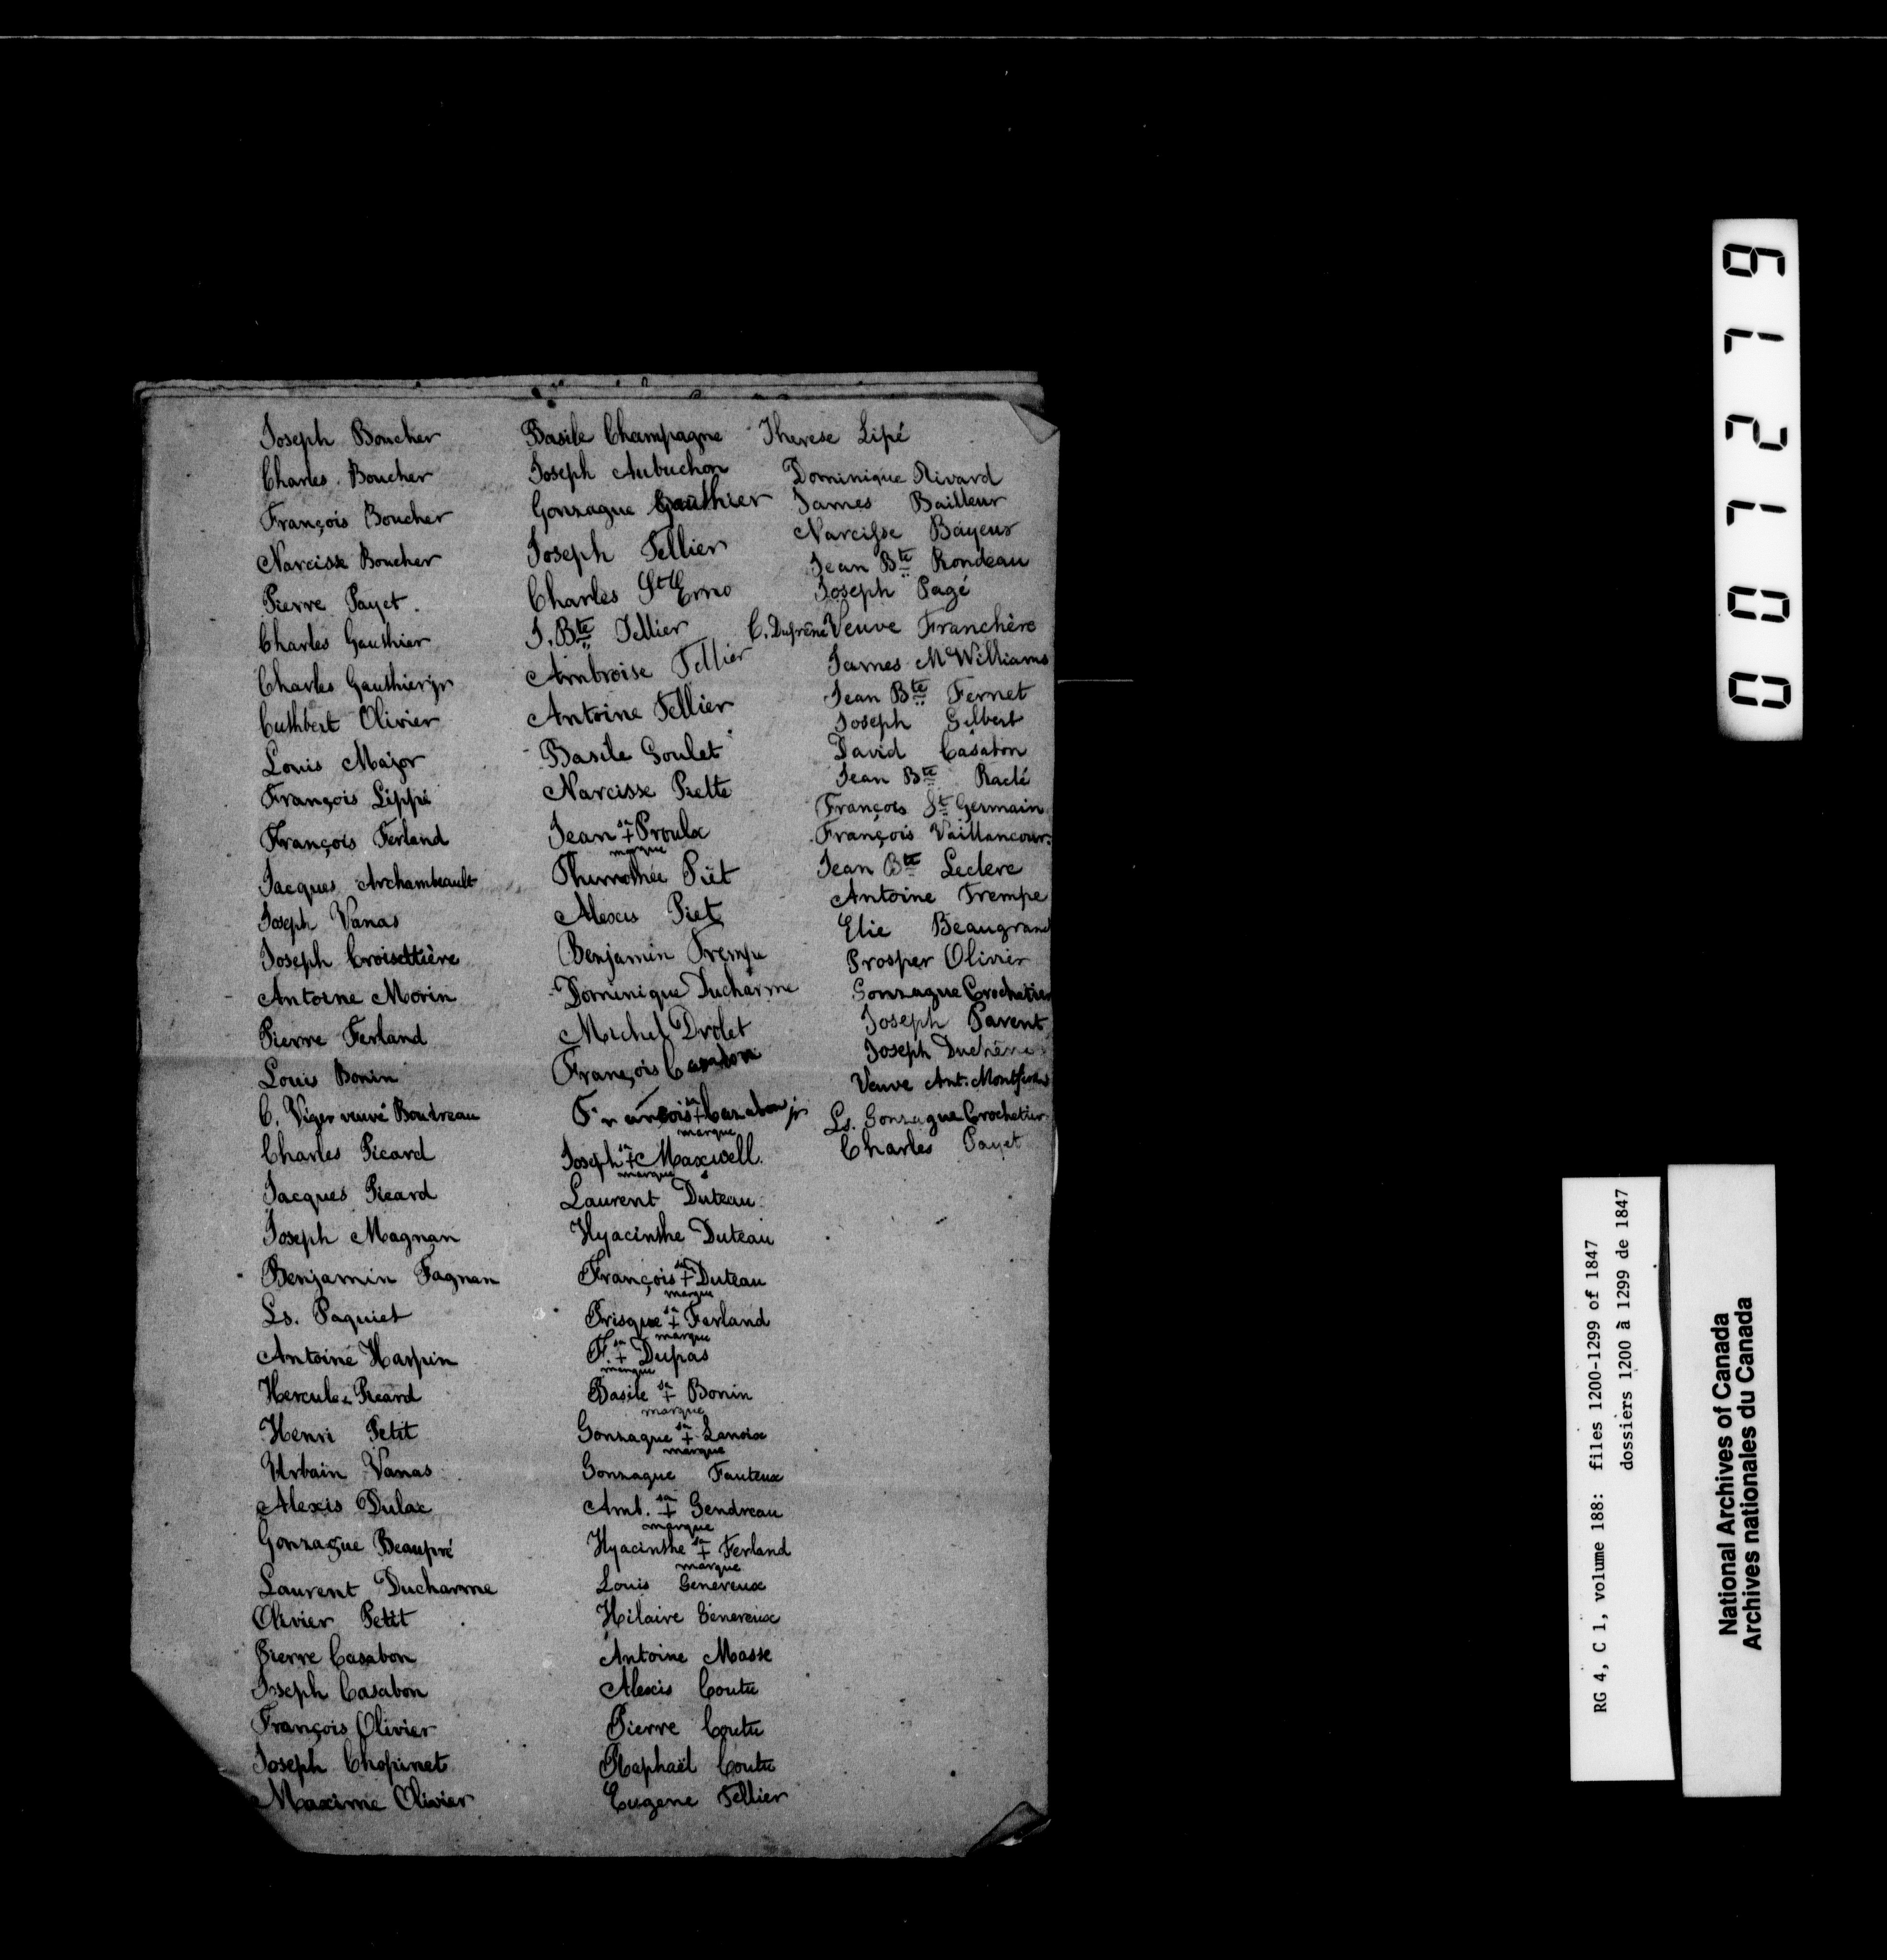 Joseph Boucher
Charles Boucher
François Boucher
Narcisse Boucher
Pierre Payet.
Charles Gauthier
Charles Gauthier jr
Cuthbert Olivier
Louis Major
François Lippé
François Ferland
Jacques Archambeault
Joseph Vanas
Joseph Croisettière
Antoine Morin
Pierre Ferland
Louis Bonin
C. Viger veuve Boudreau
Charles Picard
Jacques Picard
Joseph Magnan
Benjamin Fagnan
Ls. Paquiet
Antoine Harpin
Hercule Picard
Henri Petit
Urbain Vanas
Alexis Dulac
Gonzague Beaupré
Laurent Ducharme
Olivier Petit
Pierre Casabon
Joseph Casabon
François Olivier
Joseph Chopinet
Maxime Olivier
Basile Champagne
Joseph Aubuchon
Gonzague Gauthier
Joseph Tellier
Charles St
J. Bte Tellier
Ambroise Tellier
Antoine Tellier
Basile Goulet
Narcisse Piette
Jean sa + Proulx
marque
Piet
Alexis Piet
Benjamin Trempe
Dominique Ducharme
Michel Drolet
François
François sa + Cazabon jr
marque
Joseph sa + Maxwell.
marque
Laurent Duteau
Hyacinthe Duteau
François sa + Duteau
marque
Prisque sa + Ferland
marque
F. sa + Dupas
marque
Basile sa + Bonin
marque
Gonzague sa + Lanoix
marque
Gonzague Fauteux
Amb. sa + Gendreau
marque
Hyacinthe sa + Ferland
marque
Louis Genereux
Hilaire Génereux
Antoine Masse
Alexis Coutu
Pierre Coutu
Raphaël Coutu
Eugene Tellier
Therese Lipé
Dominique Rivard
James Bailleur
Narcisse Bayeur
Jean Bte Rondeau
Joseph Pagé
C. Dufrêne Veuve Franchère
James McWilliams
Jean Bte Fernet
Joseph Gilbert
David Casabon
Jean Bte
François St Germain
François Vaillancour
Jean Bte Leclerc
Antoine Trempe
Elie Beaugrand
Prosper Olivier
Gonzague Crochetier
Joseph Parent
Joseph
Veuve Ant.
Ls. Gonzague Crochetier
Charles Payet
001219
RG 4, C 1, volume 188: files 1200-1299 of 1847
dossiers 1200 à 1299 de 1847
National Archives of Canada
Archives nationales du Canada